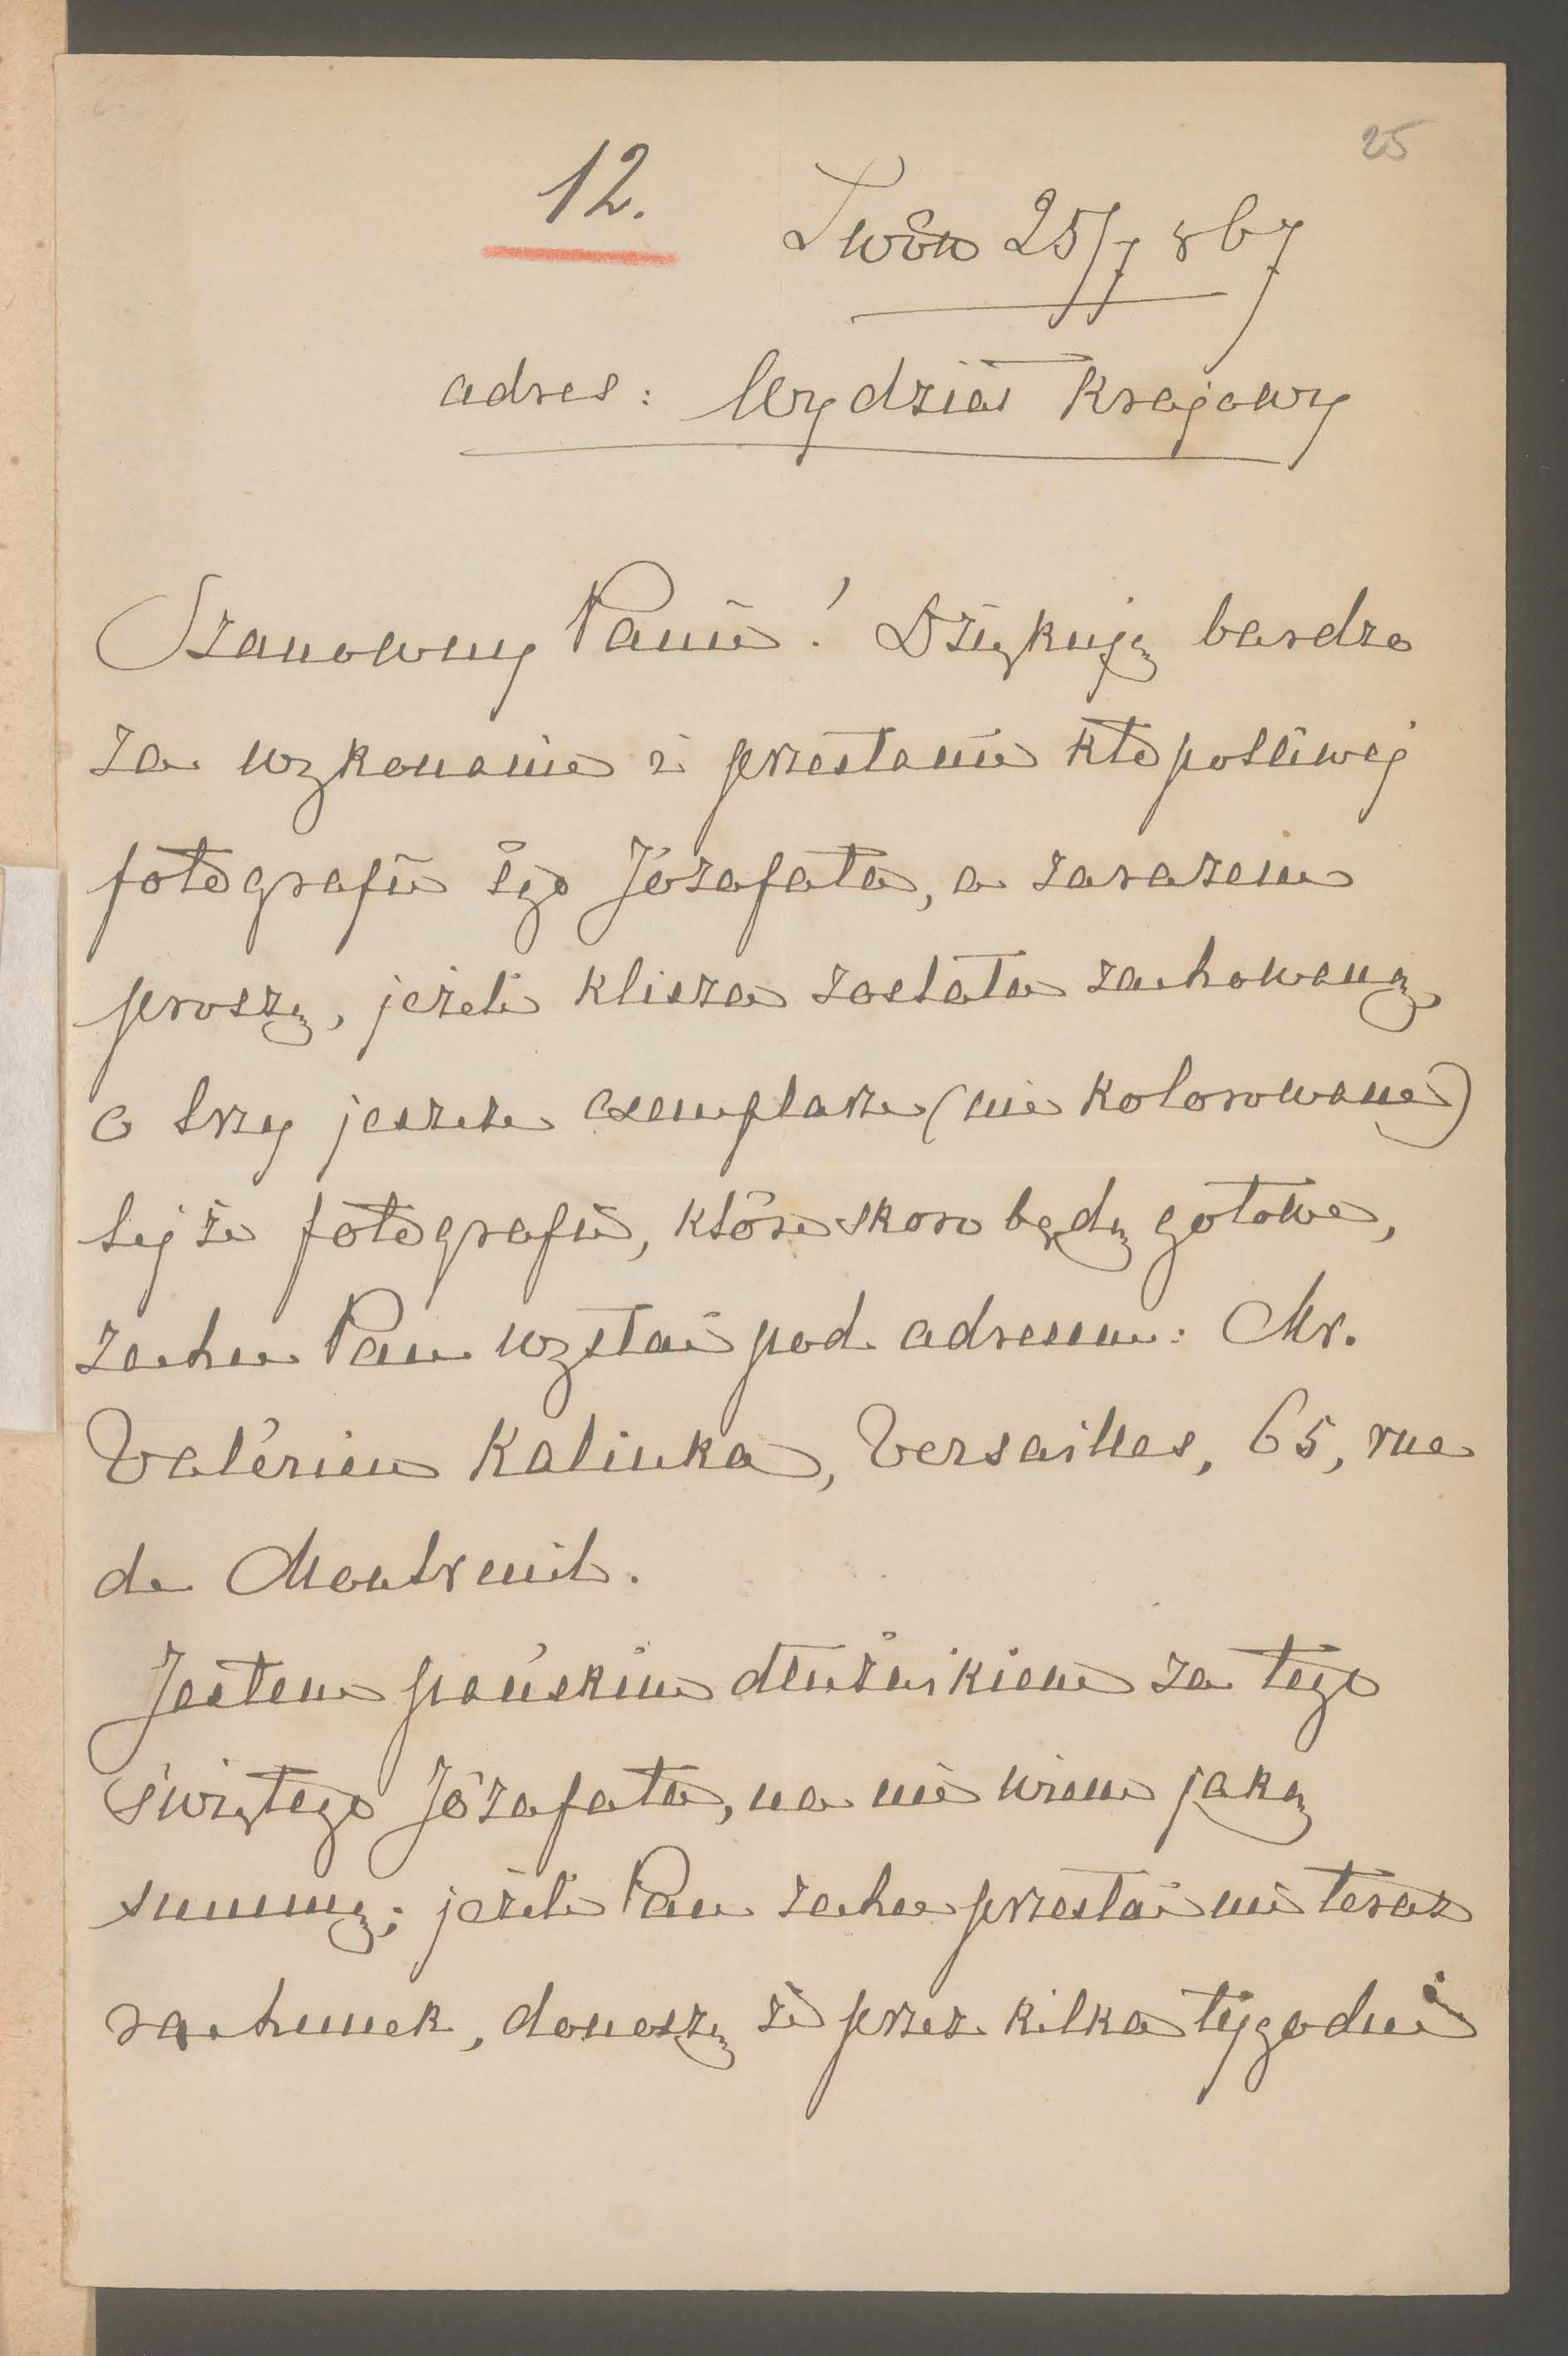 25
12.
Lwów 25/7 867
adres: Wydział Krajowy
Szanowny Panie! Dziękuję bardzo
za wykonanie i przesłanie kłopotliwej
fotografii śgo Józafata, a zarazem
proszę, jeżeli klisza została zachowaną
o trzy jeszcze exemplarze (nie kolorowane)
tejże fotografii, które skoro będą gotowe,
zechce Pan wysłać pod adresem: Mr.
Valérien Kalinka, Versailles, 65, rue
de Montreuil.
Jestem pańskim dłużnikiem za tego
świętego Józafata, na nie wiem jaką
summę; jeżeli Pan zechce przesłać mi teraz
rachunek, donoszę że przez kilka tygodni